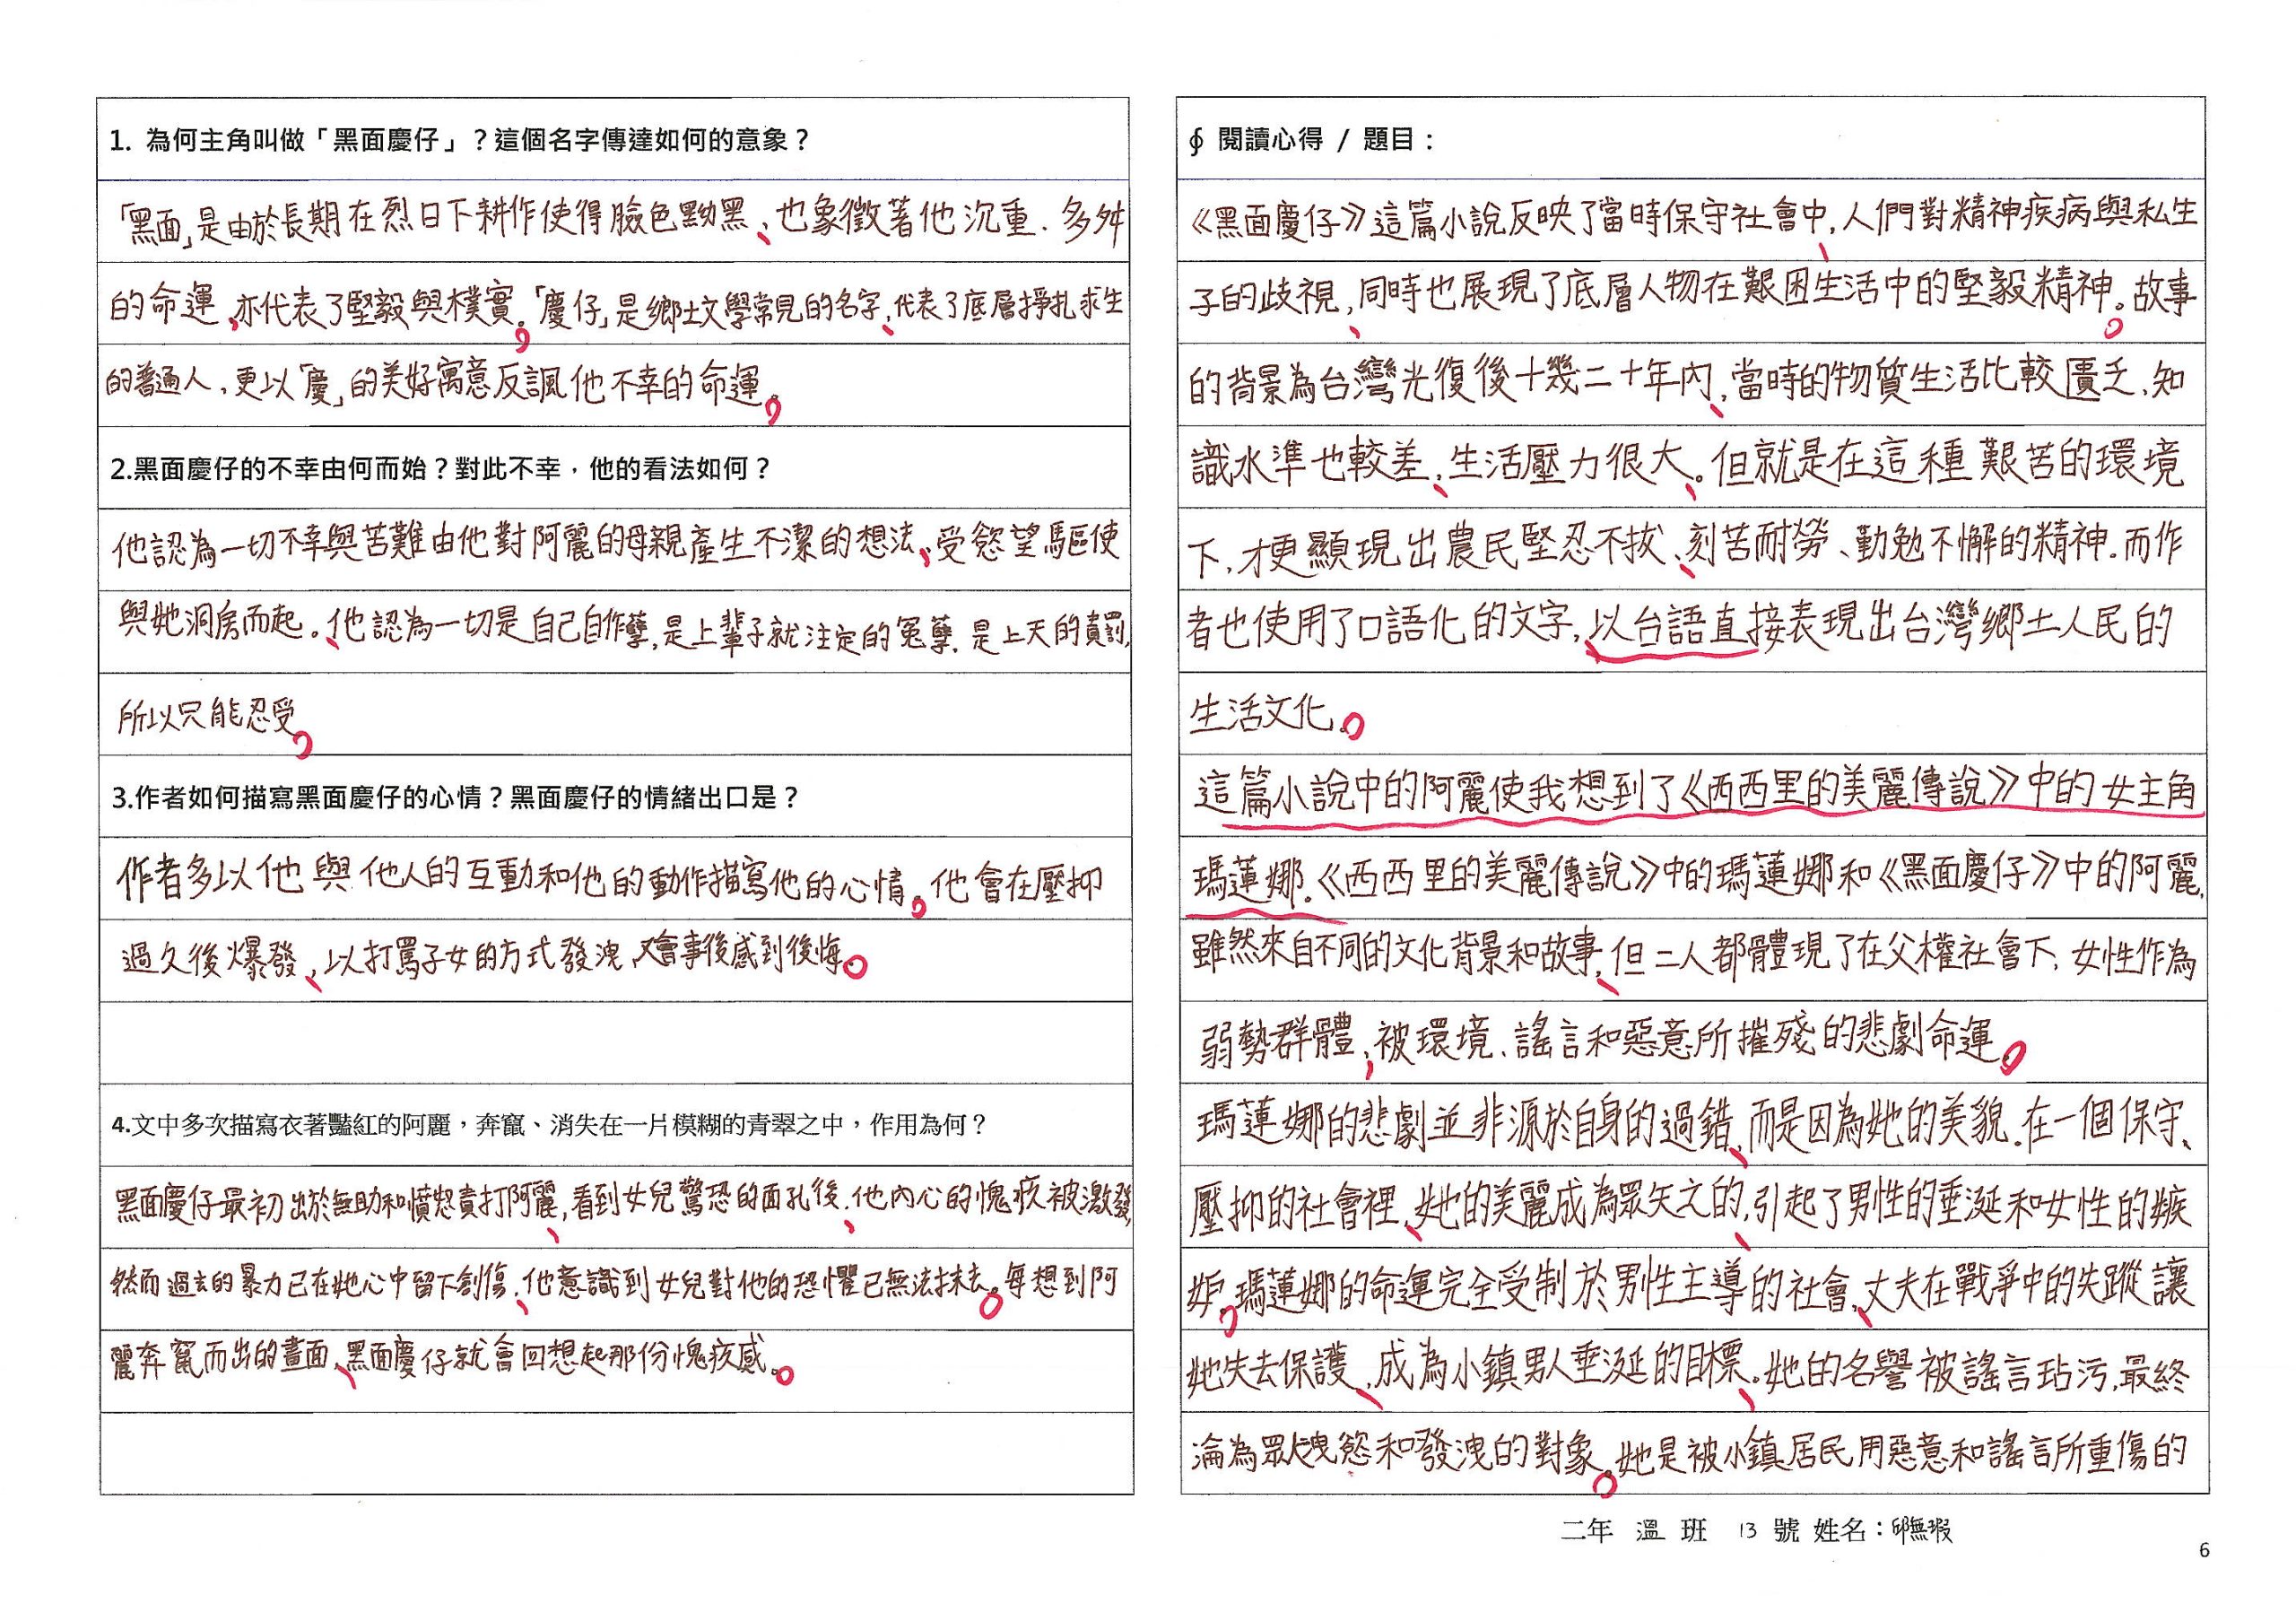 1. 為何主角叫做「黑面慶仔」？這個名字傳達如何的意象？
「黑面」是由於長期在烈日下耕作使得臉色黝黑、也象徵著他沉重、多舛
的命運,亦代表了堅毅與樸實。「慶仔」是鄉土文學常見的名字,代表了底層掙扎求生
的普通人,更以「慶」的美好寓意反諷他不幸的命運。
2.黑面慶仔的不幸由何而始？對此不幸，他的看法如何？
他認為一切不幸與苦難由他對阿麗的母親產生不潔的想法、受慾望驅使
與她洞房而起。他認為一切是自己自作孽,是上輩子就注定的冤孽,是上天的責罰,
所以只能忍受。
3.作者如何描寫黑面慶仔的心情？黑面慶仔的情緒出口是？
作者多以他與他人的互動和他的動作描寫他的心情。他會在壓抑
過久後爆發,以打罵子女的方式發洩,又會事後感到後悔。
4.文中多次描寫衣著豔紅的阿麗，奔竄、消失在一片模糊的青翠之中，作用為何？
黑面慶仔最初出於無助和憤怒責打阿麗,看到女兒驚恐的面孔後,他內心的愧疚被激發,
然而過去的暴力已在她心中留下創傷,他意識到女兒對他的恐懼已無法抹去。每想到阿
麗奔竄而出的畫面,黑面慶仔就會回想起那份愧疚感。
∮ 閱讀心得 / 題目：
《黑面慶仔》這篇小說反映了當時保守社會中,人們對精神疾病與私生
子的歧視,同時也展現了底層人物在艱困生活中的堅毅精神。故事
的背景為台灣光復後十幾二十年內,當時的物質生活比較匱乏,知
識水準也較差,生活壓力很大。但就是在這種艱苦的環境
下,才更顯現出農民堅忍不拔、刻苦耐勞、勤勉不懈的精神.而作
者也使用了口語化的文字,以台語直接表現出台灣鄉土人民的
生活文化。
這篇小說中的阿麗使我想到了《西西里的美麗傳說》中的女主角
瑪蓮娜.《西西里的美麗傳說》中的瑪蓮娜和《黑面慶仔》中的阿麗,
雖然來自不同的文化背景和故事,但二人都體現了在父權社會下,女性作為
弱勢群體,被環境、謠言和惡意所摧殘的悲劇命運。
瑪蓮娜的悲劇並非源於自身的過錯,而是因為她的美貌.在一個保守、
壓抑的社會裡,她的美麗成為眾矢之的,引起了男性的垂涎和女性的嫉
妒。瑪蓮娜的命運完全受制於男性主導的社會,丈夫在戰爭中的失蹤讓
她失去保護,成為小鎮男人垂涎的目標。她的名譽被謠言玷污,最終
淪為眾人洩慾和發洩的對象。她是被小鎮居民用惡意和謠言所重傷的
二年 溫 班 13 號 姓名：邱無瑕
6